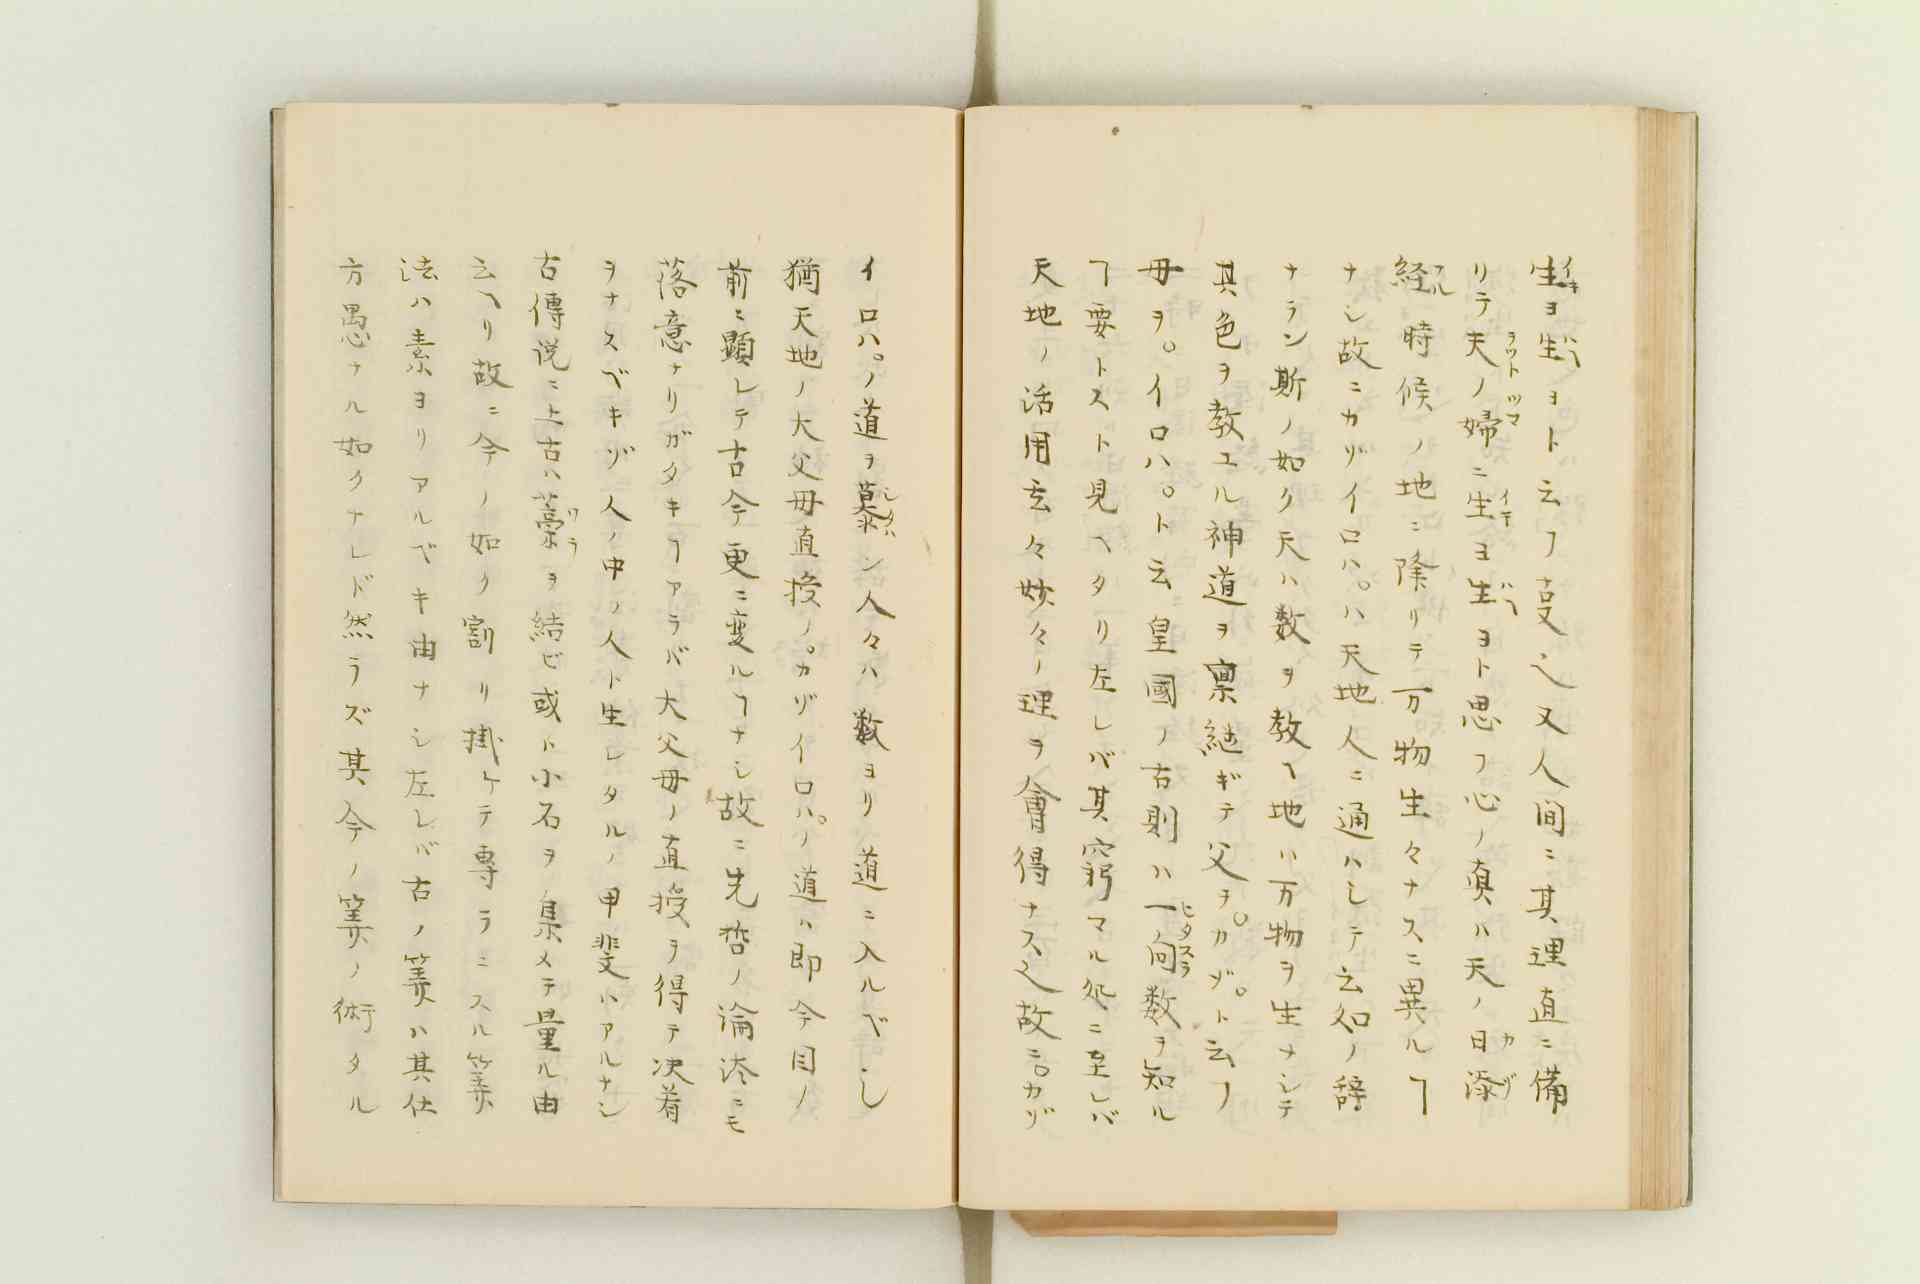 生ヨ生ヨト云フ㕝之又人間ニ其理直ニ備
リテ夫ノ婦ニ生ヨ生ヨト思フ心ノ眞ハ天ノ日添
経時候ノ地ニ降リテ万物生々ナスニ異ルヿ
ナシ故ニカゾイロハ。ハ天地人ニ通ハシテ云ノ辞
ナラン斯ノ如ク天ハ数ヲ教ヘ地ハ万物ヲ生ナシテ
其色ヲ教エル神道ヲ稟継ギテ父ヲ。カゾ。ト云フ
母ヲ。イロハ。ト云皇國ノ古則ハ一向数ヲ知ル
ヿ要トスト見ヘタリ左レバ其窮マル処ニ至レバ
天地ノ活用玄々妙々ノ理ヲ會得ナス之故ニ。カゾ
イロハ。ノ道ヲ慕ン人々ハ数ヨリ道ニ入ルベシ
猶天地ノ大父母直授ノ。カゾイロハ。ノ道ハ即今目ノ
前ニ顕レテ古今更ニ変ルヿナシ故ニ先哲ノ論法ニモ
落意ナリガタキヿアラバ大父母ノ直授ヲ得テ决着
ヲナスベキゾ人ノ中ノ人ト生レタルノ甲斐ハアルナシ
古傳説ニ上古ハ藁ヲ結ビ或ト小石ヲ集メテ量ル由
云ヘリ故ニ今ノ如ク割リ掛ケテ専ラニスル筭
法ハ素ヨリアルベキ由ナシ左レバ古ノ筭ハ其仕
方愚ナル如クナレド然ラズ其今ノ筭ノ術タル